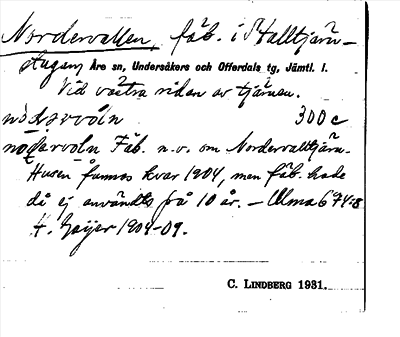 Nordervallen, fäb. i Stalltjärn-
stugan, Åre sn, Undersåkers och Offerdals tg, Jämtl. l.
Vid västra sidan av tjärnen.
nòḍərvoln 300 c
nòḍərvoln Fäb. n.v. om Nordervalltjärn.
Husen funnos kvar 1904, men fäb. hade
då ej använts på 10 år. – Ulma 674:8
H. Geijer 1904-09.
C. LINDBERG 1931.